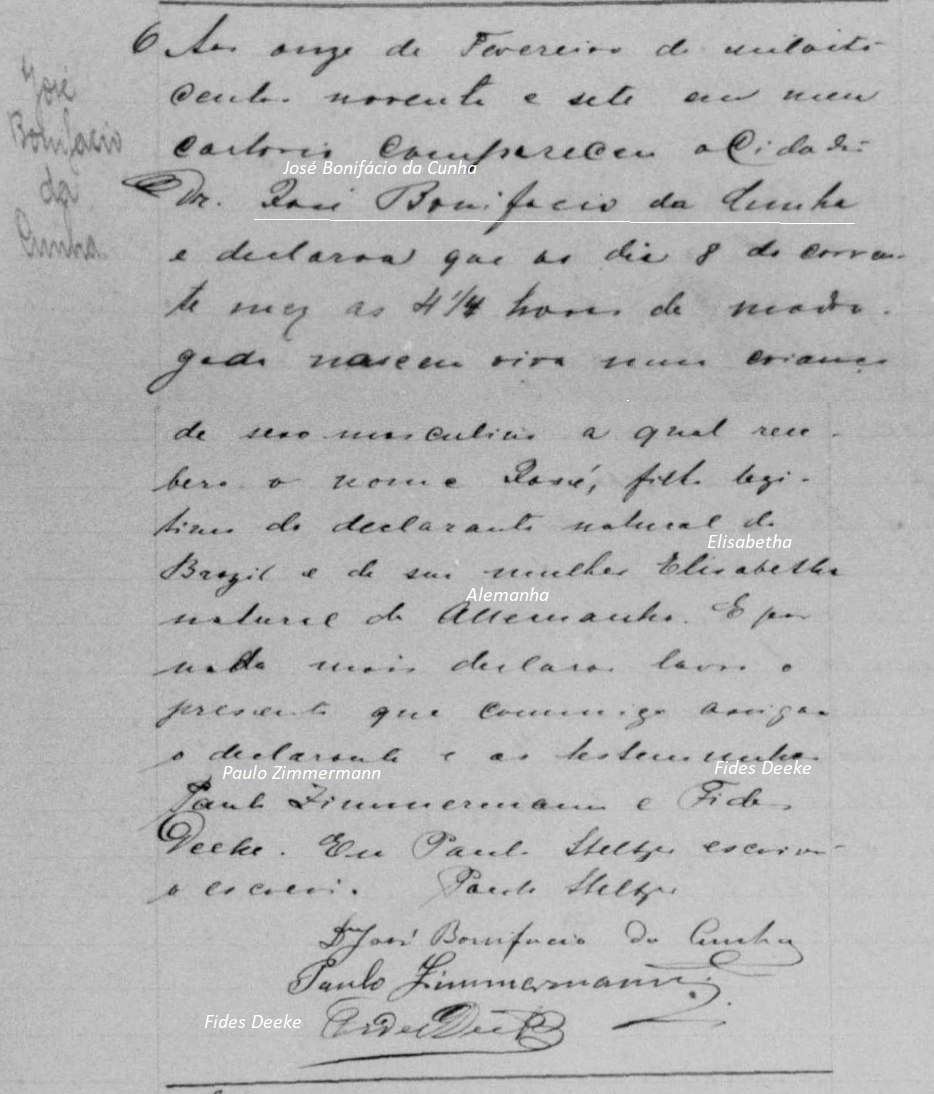 6 Aos onze de Fevereiro de miloito
centos noventa e sete em meu
cartorio compareceu o Cidadão
José Bonifácio da Cunha
Dr. José Bonifacio da Cunha
José
Bonifacio
da
Cunha
e declarou que ao dia 8 do corren-
te mez as 4 1/4 horas da madru-
gada nasceu viva uma criança
de sexo masculino a qual rece-
bera o nome José, filho legi-
timo do declarante natural do
Elisabetha
Brazil e de sua mulher Elisabetha
Alemanha
natural da Allemanha. E por
nada mais declarar lavro o
presente que commigo assigna
o declarante e as testemunhas
Paulo Zimmermann
Fides Deeke
Paulo Zimmermann e Fides
Deeke. Eu Paulo Steltzer escrivão
o escrevi. Paulo Steltzer
Dr José Bonifacio da Cunha
Paulo Zimmermann
Fides Deeke
Fides Deeke